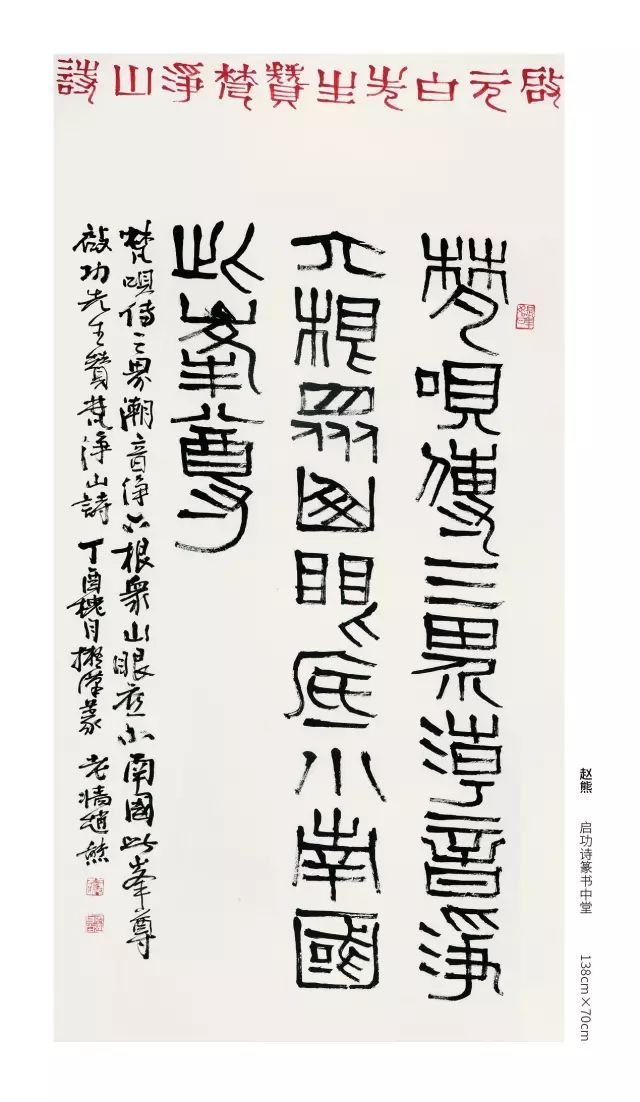 啟元白先生贊梵淨山詩
梵唄傳三界潮音淨
六根眾山眼底小南國
此峯尊
梵唄傳三界潮音淨六根眾山眼底小南國此峯尊
啟功先生贊梵淨山詩 丁酉穐月擬漢篆 老墻趙熊
赵熊 启功诗篆书中堂 138cm×70cm